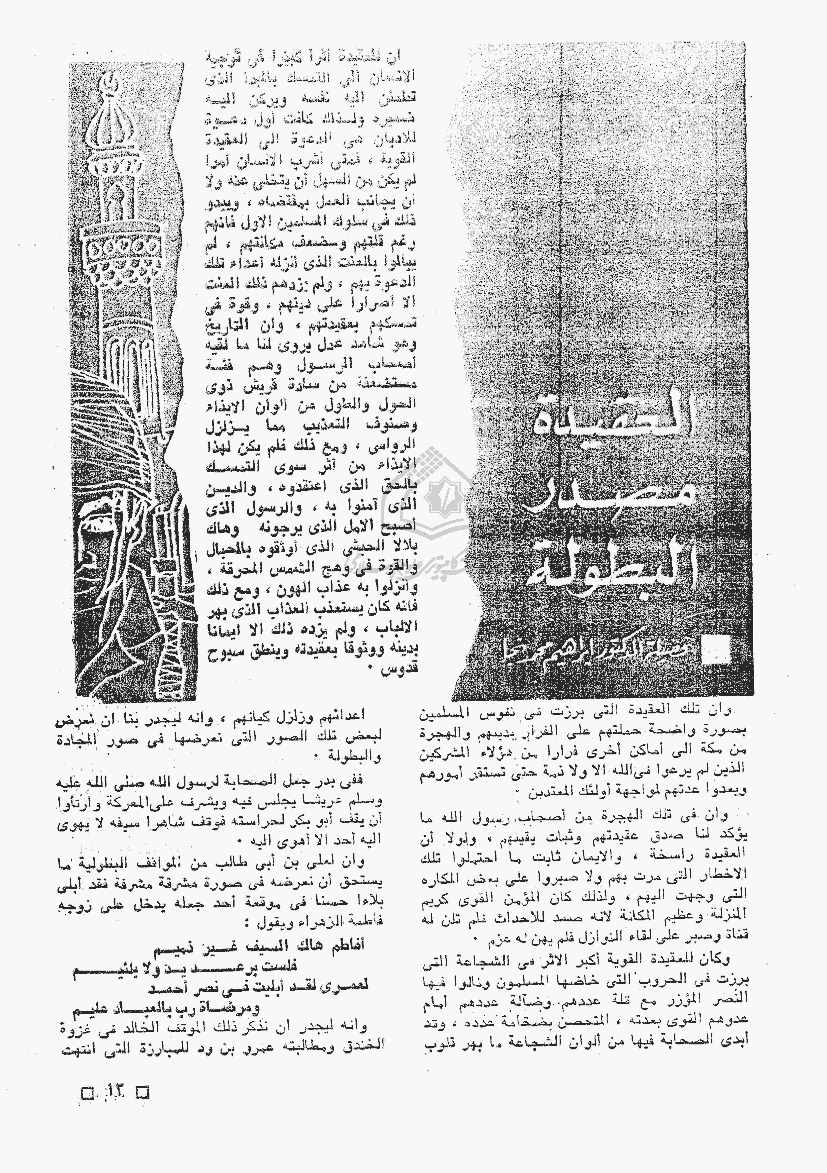 العقيدة
مصدر
البطولة
ان للعقيدة أثرا كبيرا فى توجيه
الانسان الى التمسك بالمبدأ الذى
تطمئن اليه نفسه ويركن اليه
ضميره ولذلك كانت أول دعوة
للأديان هى الدعوة الى العقيدة
القوية ، فمتى أشرب الانسان أمرا
لم يكن من السهل أن يتخلى عنه ولا
أن يجانب العمل بمقتضاه ، ويبدو
ذلك فى سلوك المسلمين الاول فانهم
رغم قلتهم وضعف مكانتهم ، لم
يبالوا بالعنت الذى أنزله أعداء تلك
الدعوة بهم ، ولم يزدهم ذلك العنت
الا اصرارا على دينهم ، وقوة فى
تمسكهم بعقيدتهم ، وان التاريخ
وهو شاهد عدل يروى لنا ما لقيه
أصحاب الرسول وهم فئة
مستضعفة من سادة قريش ذوى
الحول والطول من ألوان الايذاء
وصنوف التعذيب مما يزلزل
الرواسى ، ومع ذلك فلم يكن لهذا
الايذاء من أثر سوى التمسك
بالحق الذى اعتقدوه ، والدين
الذى آمنوا به ، والرسول الذى
أصبح الامل الذى يرجونه وهاك
بلالا الحبشى الذى أوثقوه بالحبال
والقوة فى وهج الشمس المحرقة ،
وأنزلوا به عذاب الهون ، ومع ذلك
فانه كان يستعذب العذاب الذى بهر
الالباب ، ولم يزده ذلك الا ايمانا
بدينه ووثوقا بعقيدته وينطق سبوح
قدوس ٠
وان تلك العقيدة التى برزت فى نفوس المسلمين
بصورة واضحة حملتهم على الفرار بدينهم والهجرة
من مكة الى أماكن أخرى فرارا من هؤلاء المشركين
الذين لم يرعوا فى الله الا ولا ذمة حتى تستقر أمورهم
ويعدوا عدتهم لمواجهة أولئك المعتدين ٠
وان فى تلك الهجرة من أصحاب رسول الله ما
يؤكد لنا صدق عقيدتهم وثبات يقينهم ، ولولا أن
العقيدة راسخة ، والايمان ثابت ما احتملوا تلك
الاخطار التى مرت بهم ولا صبروا على بعض المكاره
التى وجهت اليهم ، ولذلك كان المؤمن القوى كريم
المنزلة وعظيم المكانة لانه صمد للأحداث فلم تلن له
قناة وصبر على لقاء النوازل فلم يهن له عزم ٠
وكان للعقيدة القوية أكبر الاثر فى الشجاعة التى
برزت فى الحروب التى خاضها المسلمون ونالوا فيها
النصر المؤزر مع قلة عددهم وضآلة عددهم أمام
عدوهم القوى بعدته ، المتحصن بضخامة عدده ، وقد
أبدى الصحابة فيها من ألوان الشجاعة ما بهر قلوب
أعدائهم وزلزل كيانهم ، وانه ليجدر بنا ان نعرض
لبعض تلك الصور التى نعرضها فى صور المجادة
والبطولة ٠
ففى بدر جعل الصحابة لرسول الله صلى الله عليه
وسلم عريشا يجلس فيه ويشرف على المعركة وارتأوا
أن يقف أبو بكر لحراسته فوقف شاهرا سيفه لا يهوى
اليه أحد الا أهوى اليه ٠
وان لعلى بن أبى طالب من المواقف البطولية ما
يستحق أن نعرضه فى صورة مشرقة مشرفة فقد أبلى
بلاءا حسنا فى موقعة أحد جعله يدخل على زوجه
فاطمة الزهراء ويقول :
أفاطم هاك السيف غير ذميم
فلست برعديد ولا بلئيم
لعمرى لقد أبليت فى نصر أحمد
ومرضاة رب بالعباد عليم
وانه ليجدر ان نذكر ذلك الموقف الخالد فى غزوة
الخندق ومطالبته عمرو بن ود للمبارزة التى انتهت
١٢